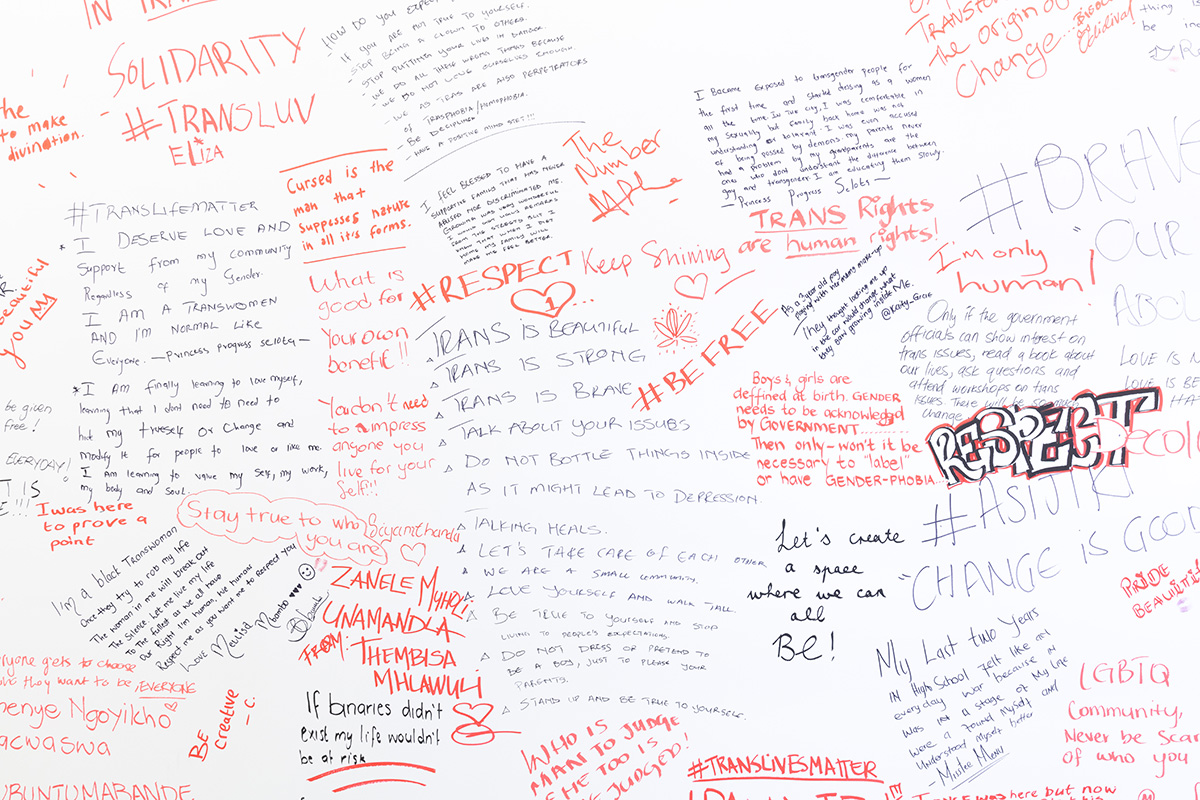 SOLIDARITY
#TRANSLUV
ELIZA
the
to make
divination.
HOW DO YOU EXPECT
IF YOU ARE NOT TRUE TO YOURSELF.
STOP BEING A CLOWN TO OTHERS.
- STOP PUTTING YOUR LIVES IN DANGER
- WE DO ALL THESE WRONG THINGS BECAUSE
WE DO NOT LOVE OURSELVES ENOUGH.
- WE AS TRANS ARE ALSO PERPETRATORS
OF TRASPHOBIA/HOMOPHOBIA.
- BE DECIPLINED
- HAVE A POSITIVE MIND SET!!!
The
Number
I Became Exposed to transgender People for
the first time and started dressing as a women
all the time. In Two city, I was comfortable in
my Sexuality but Family back home was not
understanding or tolerant. I was even accused
of being possed by demons my parents never
had a problem by my grandparents are the
ones who dont understand the difference between
gay and transgender. I am educating them slowly.
Princess Progress Selota
the origin of
Change
#BRAVE
"OUR
Cursed is the
man that
suppesses nature
in all it's forms.
I FEEL BLESSED TO HAVE A
SUPPORTIVE FAMILY THAT HAS NEVER
ABUSED NOR DISCRIMINATED ME.
GROWING WAS WAY WONDERFUL
I WOULD HAVE REMARKS
FROM THE STREETS BUT I
KNOW THAT WHEN I GET
HOME MY FAMILY WILL
MAKE ME FEEL BETTER.
TRANS Rights
are human rights!
#TRANSLIFEMATTER
* I DESERVE LOVE AND
Support from my community
Regardless of my Gender.
I AM A TRANSWOMEN
AND I'M NORMAL LIKE
Everyone. —Princess progress selota—
*I AM finally learning to love myself,
learning that I dont need to need to
hut my trueself or Change and
modify it for people to love or like me.
I am learning to value my self, my work,
my body and soul.
beautiful
you MY
be given
free!
EVERYDAY!
What is
good for
Your own
benefit!!
You don't need
to impress
anyone you
live for your
Self!!!
#RESPECT
1
Keep Shining
#BE FREE
TRANS IS BEAUTIFUL
TRANS IS STRONG
TRANS IS BRAVE
TALK ABOUT YOUR ISSUES
DO NOT BOTTLE THINGS INSIDE
AS IT MIGHT LEAD TO DEPRESSION.
TALKING HEALS.
LET'S TAKE CARE OF EACH OTHER
WE ARE A SMALL COMMUNITY.
LOVE YOURSELF AND WALK TALL.
BE TRUE TO YOURSELF AND STOP
LIVING TO PEOPLE'S EXPECTATIONS.
DO NOT DRESS OR PRETEND TO
BE A BOY, JUST TO PLEASE YOUR
PARENTS.
STAND UP AND BE TRUE TO YOURSELF.
As a 3 year old boy
playing with her mama's make-up
They thought locking me up
in the car would change what
they saw growing inside ME.
@Katy_Grae
I'm only
human!
Only if the government
officials can show interest on
trans issues, read a book about
our lives, ask questions and
attend workshops on trans
issues. There will be
change
LOVE IS
LOVE IS BE
Boys & girls are
deffined at birth. GENDER
needs to be acknowledged
by GOVERNMENT..........
Then only—won't it be
necessary to "label"
or have GENDER-PHOBIA...
RESPECT
Decolo
#ASIJIKI
"CHANGE IS GOOD
PRIDE
BEAUTIFUL
I was here
to prove a
point
Stay true to who
you are
Siyamthanda
I'm a black Transwoman
Once they try to rob my life
The human in me will break out
The Silence. Let me live my life
To the fullest as we all have
Our Right I'm human. We human
Respect me as you want me to Respect you
Love
Mbambo
ZANELE MUHOLI
UNAMANDLA
FROM: THEMBISA
MHLAWULI
If binaries didn't
exist my life wouldn't
be at risk
Let's create
a space
where we can
all
BE!
My Last two Years
IN High School Felt like
everyday war because IN
was at a stage of My Life
were a found Myself and
Understood Myself better
LGBTQ
Community,
Never be Scar
of who you
everyone gets to choose
who they want to be, EVERYONE
Ngoyikho
BE
Creative
- C.
WHO IS
MAN TO JUDGE
HE TOO IS
JUDGED!
#TRANSLIVESMATTER
UBUNTUMABANDE
was here but now